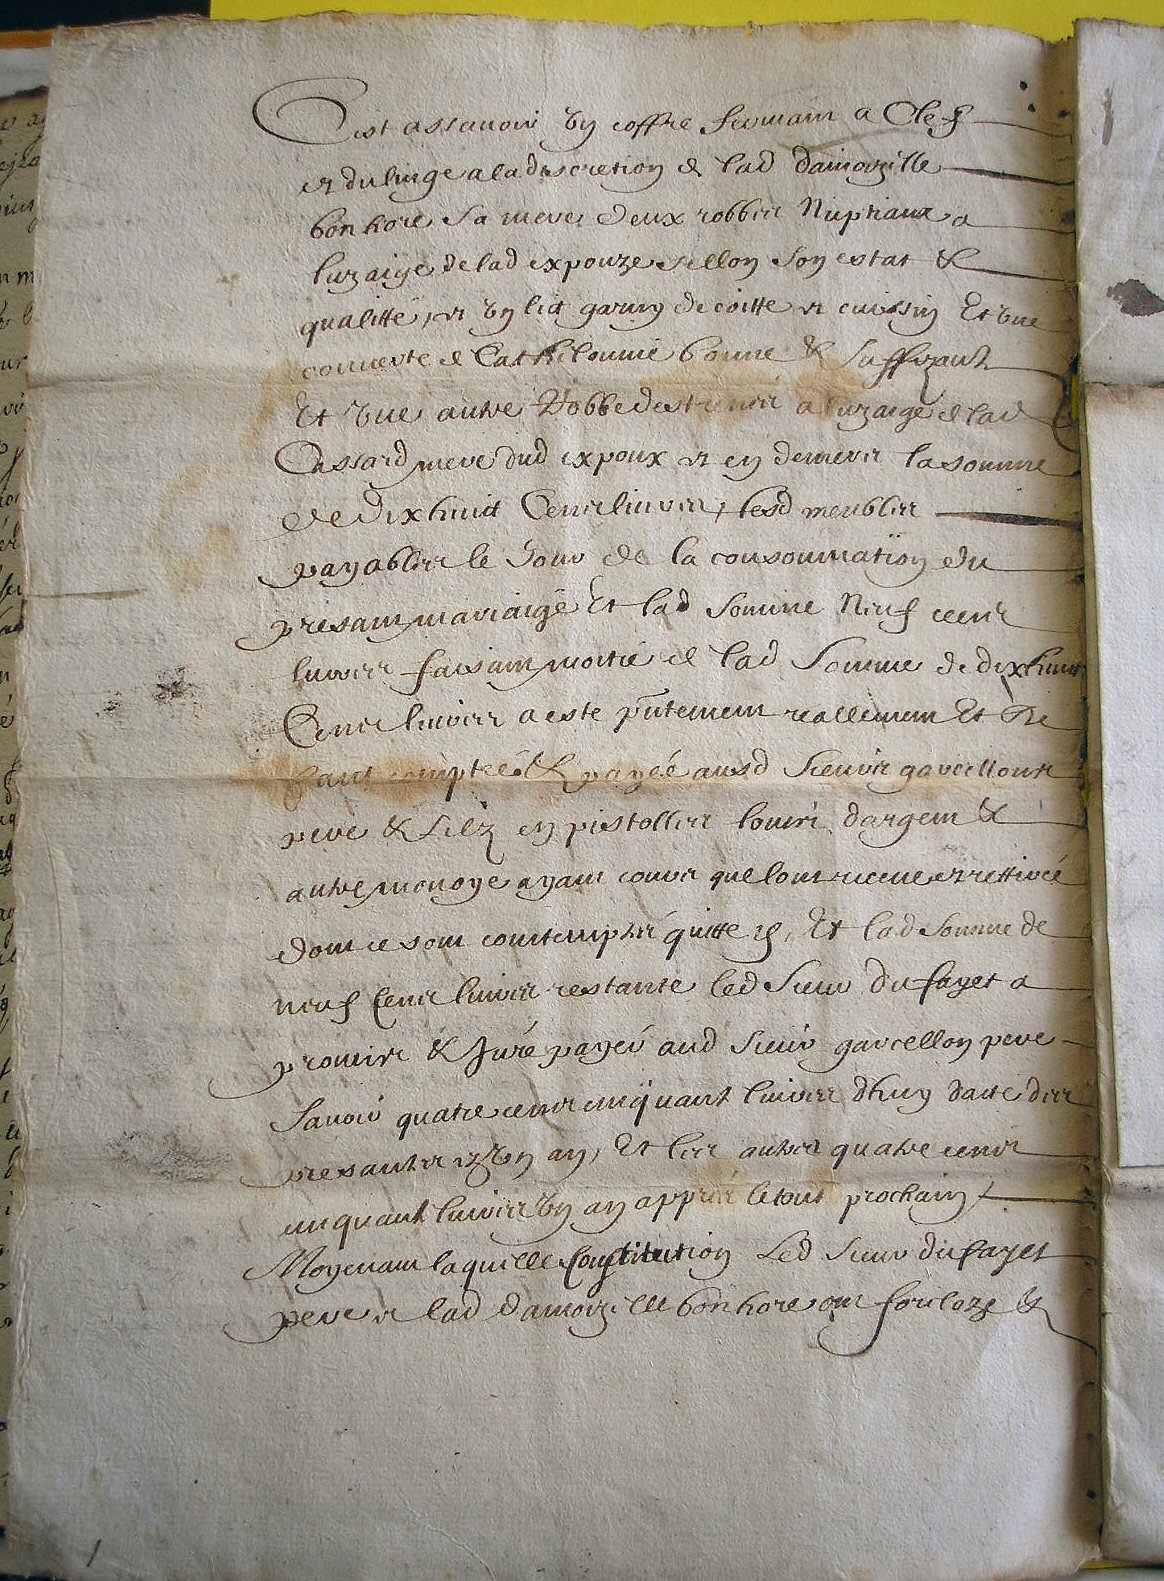 Cest assauoir Un coffre fermant a Clef
et du linge a la discretion de lad damoizelle
bonhore sa mere deux robbes Nuptiaux a
luzaige de lad expouze sellon son estat &
qualitté, et Un lit garny de coitte et cuissin Et Une
couuerte de Cathelounie bonne & suffizante
Et Une autre Robbe destinée a luzaige de lad
Cassard mere dud expoux et en deniers la somme
de dix huict Cens liures, lesd meubles
payables le Jour de la consommation du
presant mariaige Et lad somme Neuf cens
liures faisant moitié de lad somme de dix huict
Cens liures a este pntement reallement Et De
faict comptée & payée ausd sieurs garcellons
pere & filz en pistolles louis dargent &
autre monoye ayant cours quelont receue et rettirée
dont ce sont contemptés quitte &, Et lad somme de
neuf Cens liures restante led sieur du fayet a
promis & Juré payer aud sieur garcellon pere
sauoir quatre cens cinquante liures dhuy datte des
presantes et Un an, Et les autres quatre cens
cinquante liures Un an appres le tout prochain
Moyenant laquelle Constitution Led sieur du fayet
pere et lad damoizelle bonhore ont forcloze &